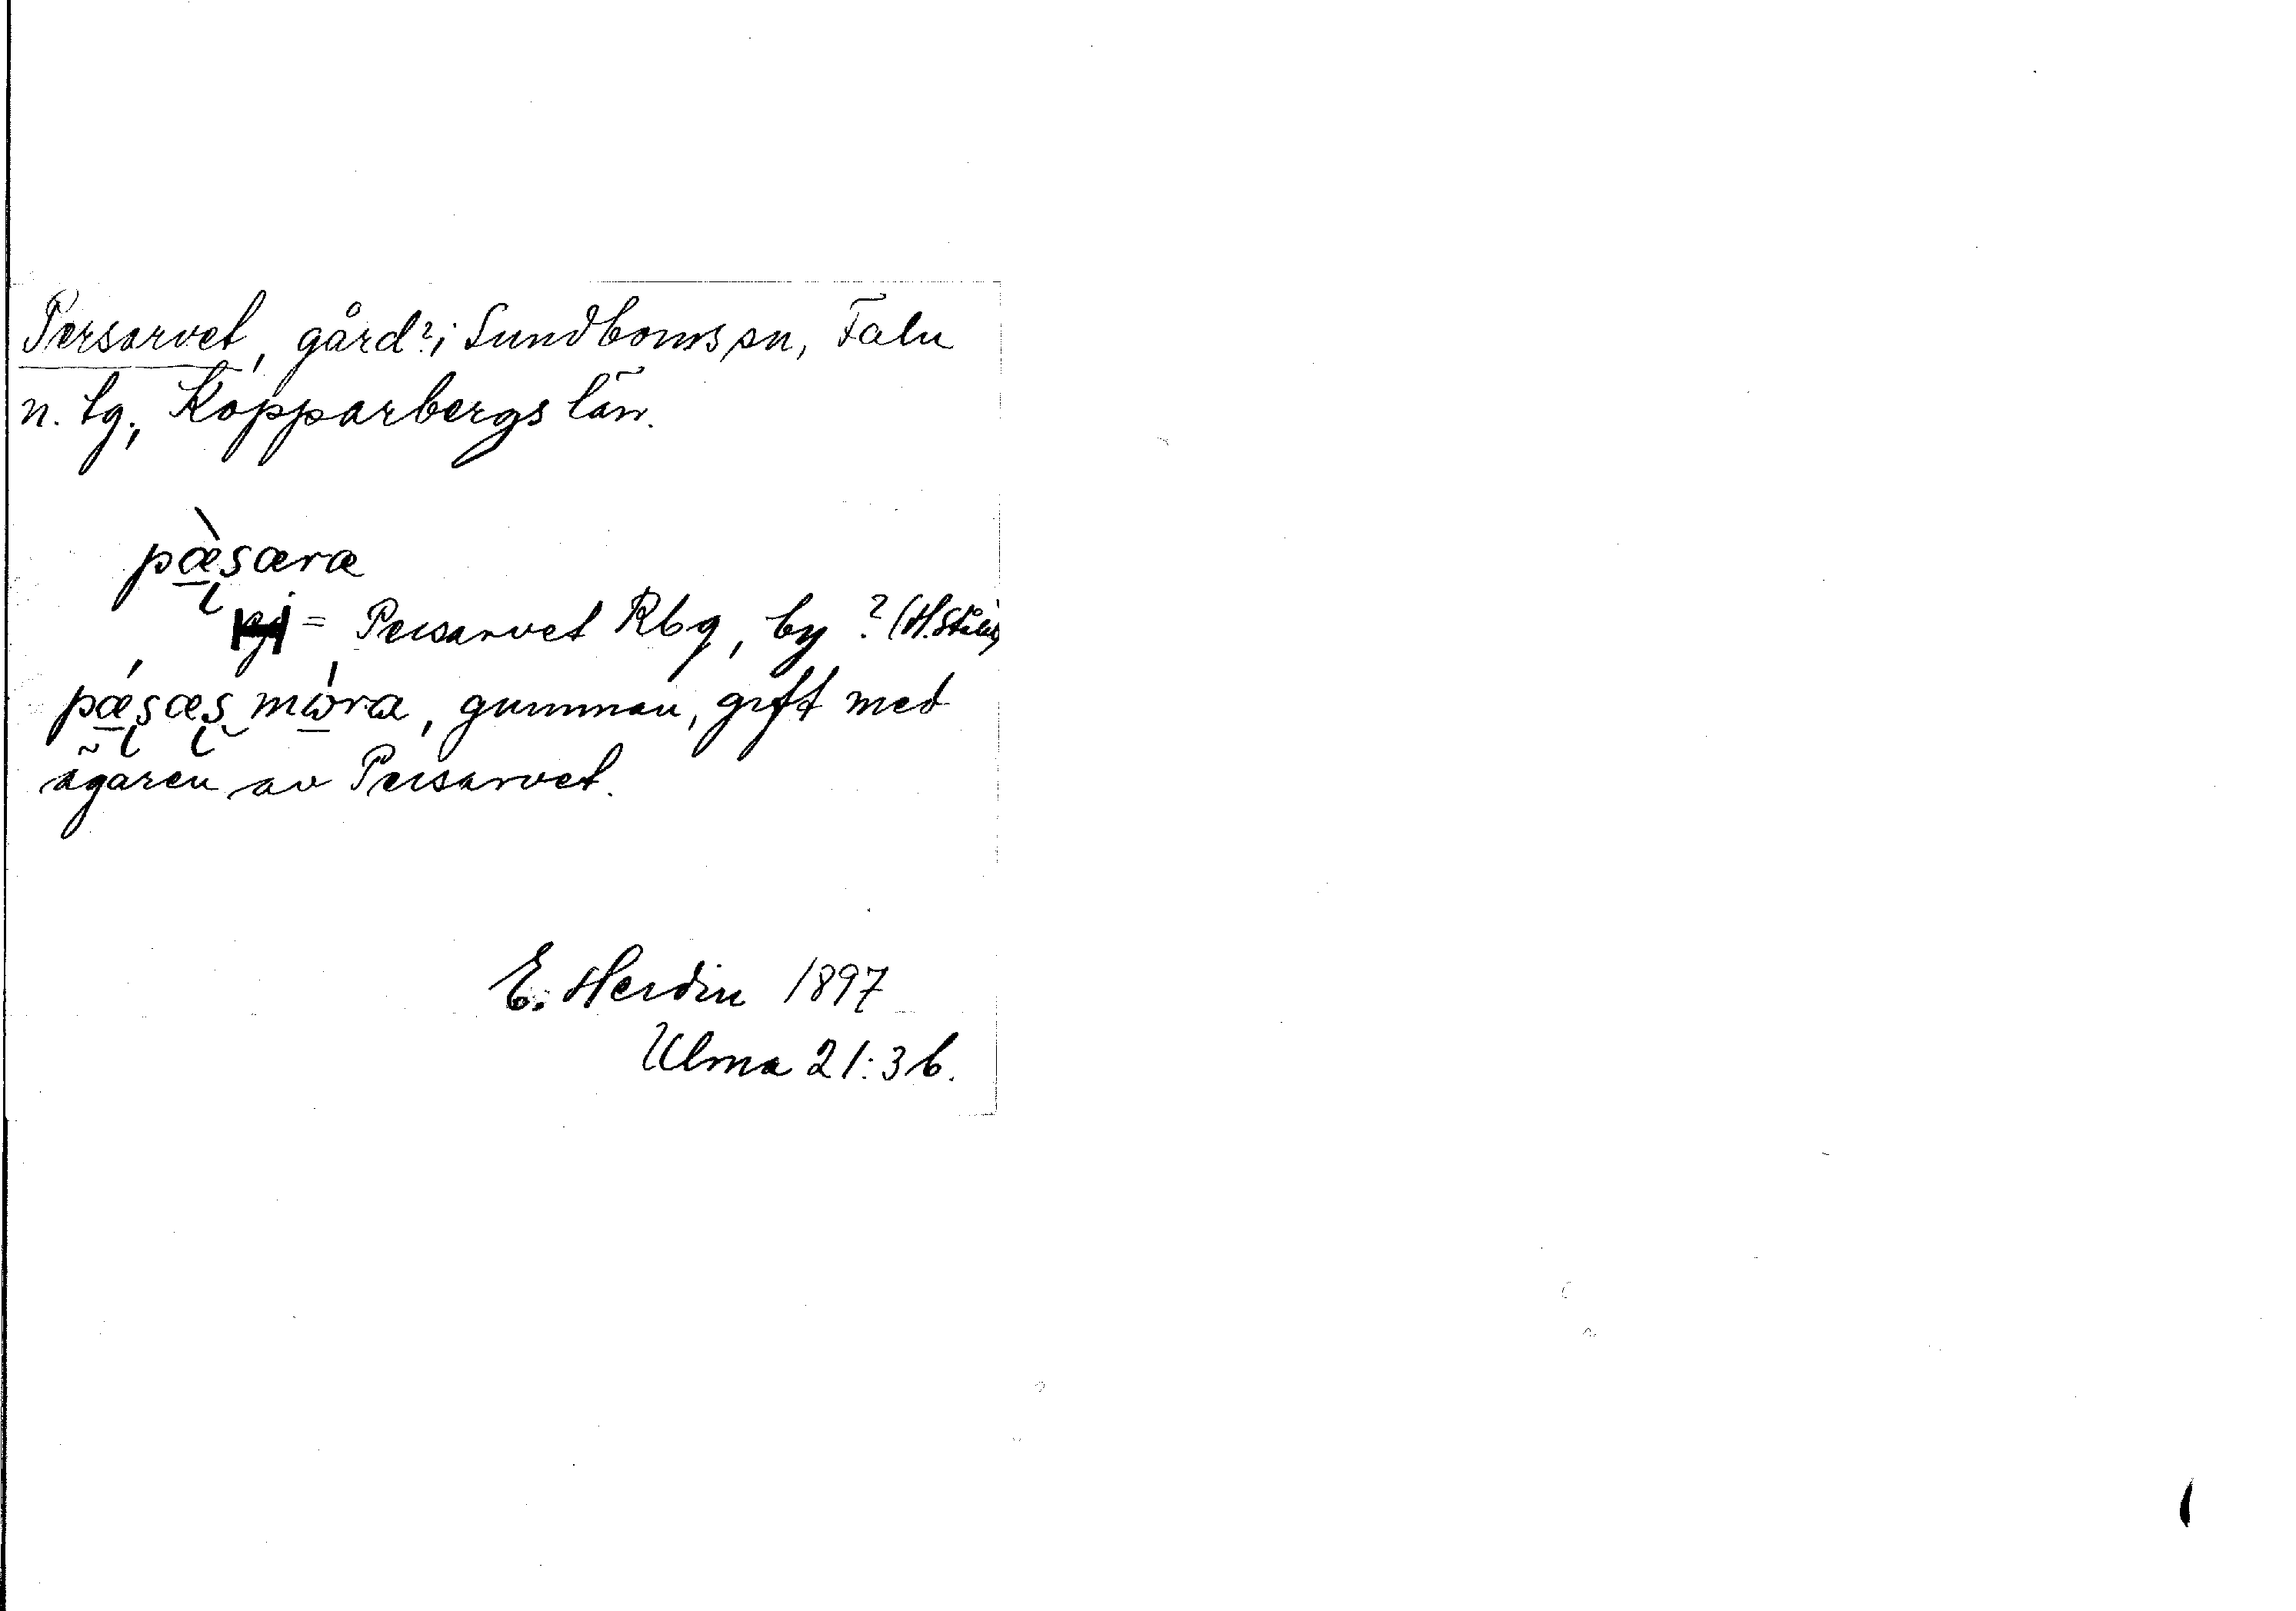 Persarvet, gård? i Sundborns sn, Falu
n. tg., Kopparbergs län.
pæ̀særæ
= Persarvet Rbg, by? (H.Ståhl)
pǽsæs mòra, gumman, gift med
ägaren av Persarvet.
E. Herdin 1897
Ulma 21:3b.